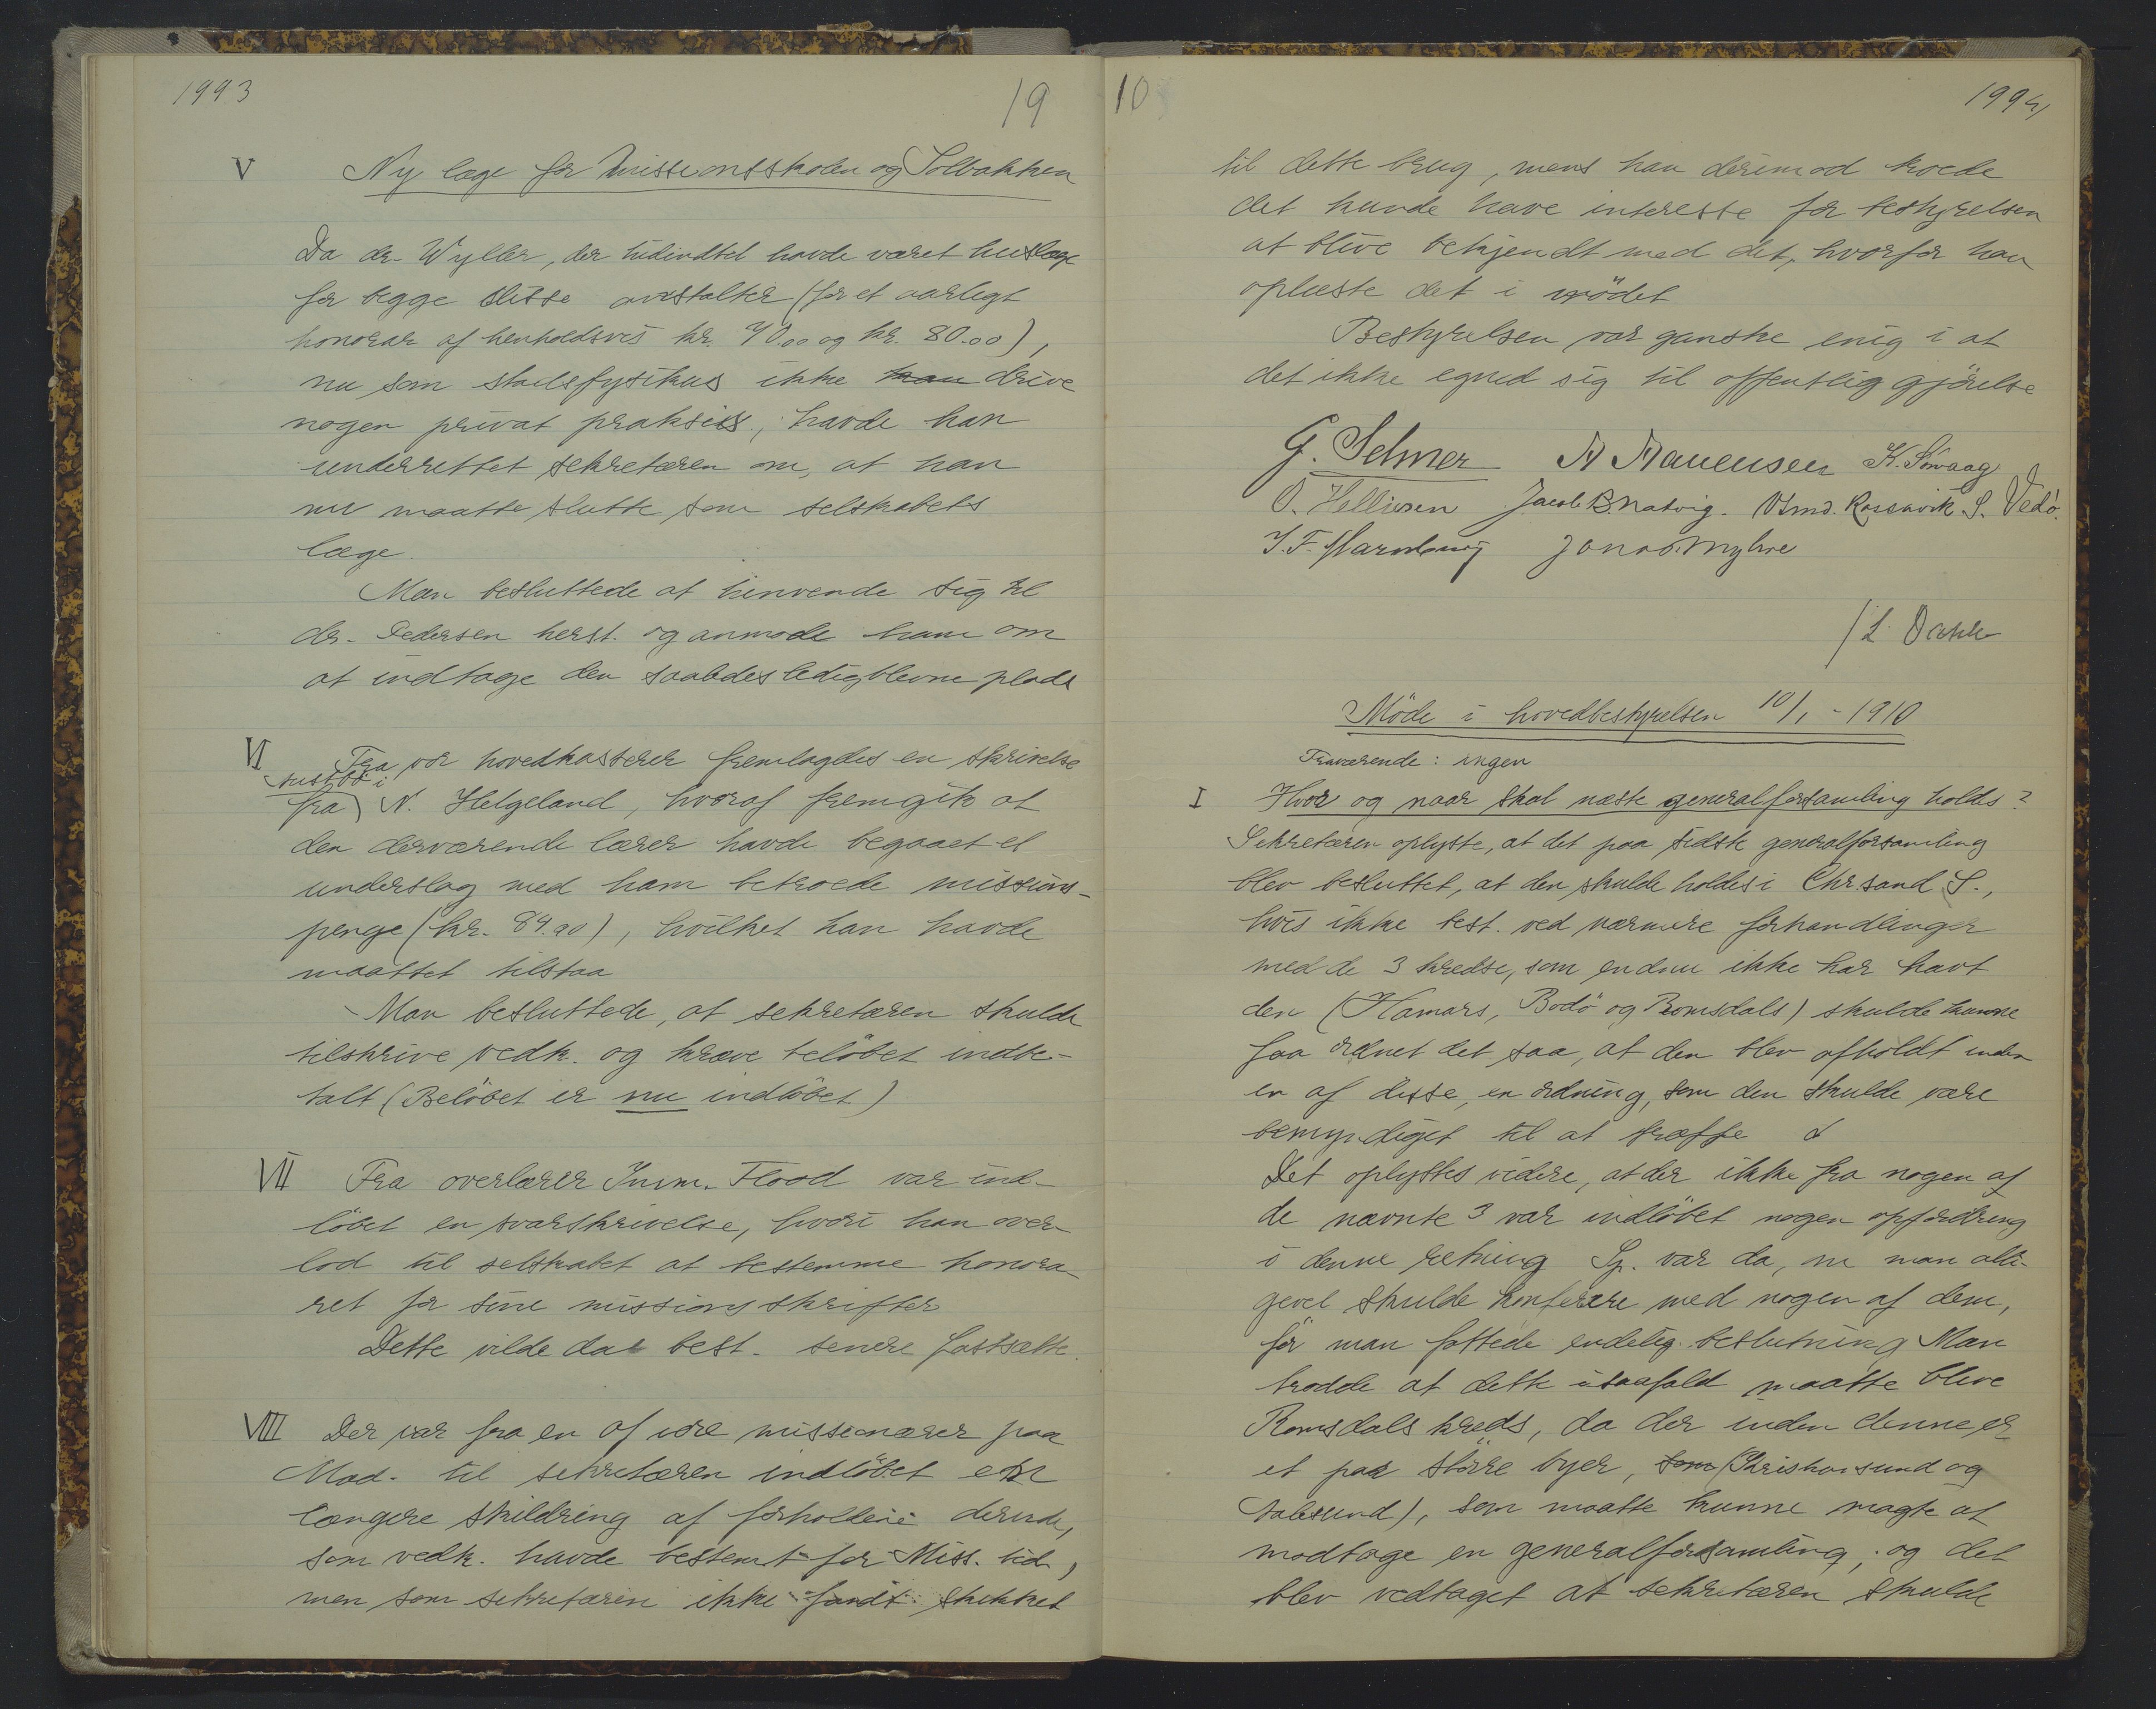 1993
19
V Ny læge for missionsskolen og Solbakken
Da dr. Wyller, der hidindtil havde været huslæge
for begge disse anstalter (for et aarligt
honorar af henholdsvis kr. 70.00 og kr. 80.00),
nu som stadsfysikus ikke kan drive
nogen privat praksis, havde han
underrettet sekretæren om, at han
nu maatte slutte som selskabets
læge.
Man besluttede at henvende sig til
dr. Pedersen herst. og anmode ham om
at indtage den saaledes ledigblevne plads
VI Fra vor hovedkasserer fremlagdes en skrivelse
fra N. Helgeland, hvoraf fremgik at
den derværende lærer havde begaaet et
underslag med ham betroede missions-
penge (kr. 84.90), hvilket han havde
maattet tilstaa
Man besluttede, at sekretæren skulde
tilskrive vedk. og kræve belöbet indbe-
talt (Belöbet er nu indlöbet)
VII Fra overlærer Imm. Flood var ind-
löbet en svarskrivelse, hvori han over-
lod til selskabet at bestemme honora-
ret for sine missionsskrifter
Dette vilde da best. senere fastsætte.
VIII Der var fra en af vore missionærer paa
Mad. til sekretæren indlöbet en
længere skildring af forholdene derude,
som vedk. havde bestemt for Miss. tid.,
men som sekretæren ikke fandt skikket
10
1994
til dette brug, mens han derimod troede
det kunde have interesse for bestyrelsen
at blive bekjendt med det, hvorfor han
oplæste det i mödet
Bestyrelsen var ganske enig i at
det ikke egned sig til offentliggjörelse
G. Selmer A Aanensen K. Smaag
O. Helliesen Jacob B. Natvig. Osmd. Rossavik S. Vedö.
J. F. Jonas Myhre
/L. Dahle
Möde i hovedbestyrelsen 10/1 - 1910
Fraværende: ingen
I Hvor og naar skal næste generalforsamling holdes?
Sekretæren oplyste, at det paa sidste generalforsamling
blev besluttet, at den skulde holdes i Chr.sand S.,
hvis ikke best. ved nærmere forhandlinger
med de 3 kredse, som endnu ikke har havt
den (Hamars, Bodö og Romsdals) skulde kunne
faa ordnet det saa, at den blev afholdt inden
en af disse, en ordning, som den skulde være
bemyndiget til at træffe
Det oplystes videre, at der ikke fra nogen af
de nævnte 3 var indlöbet nogen opfordring
i denne retning Sp. var da, om man alli-
gevel skulde konferere med nogen af dem,
för man fattede endelig beslutning Man
trodde at dette isaafald maatte blive
Romsdals kreds, da der inden denne er
et par större byer, som (Christiansund og
Aalesund), som maatte kunne magte at
modtage en generalforsamling, og det
blev vedtaget at sekretæren skulde